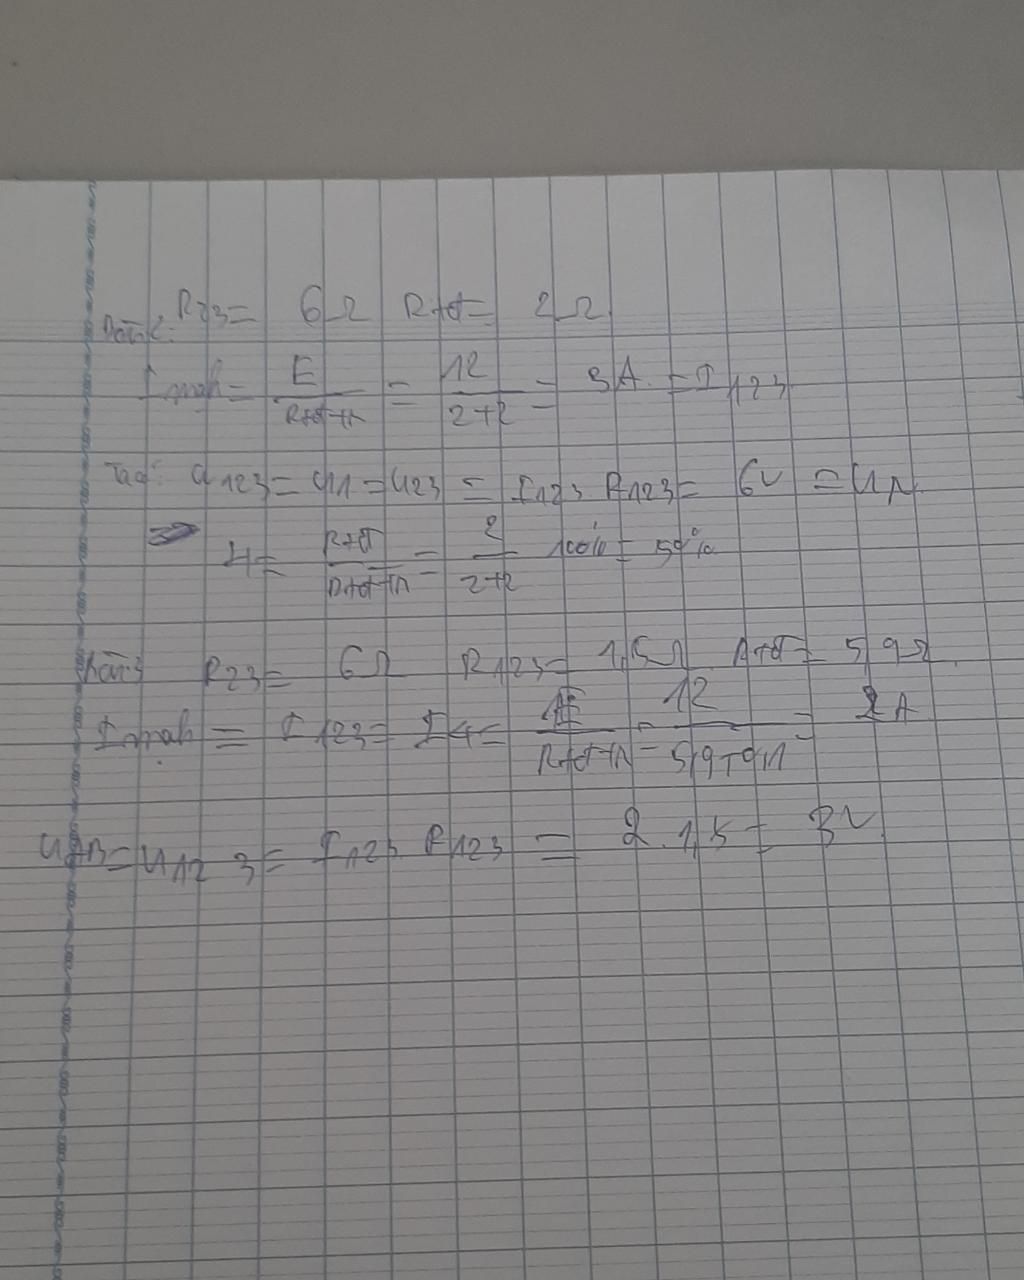 Bài 2: R23 = 6Ω Rtđ = 2Ω
I mạh = E / Rtđ+r = 12 / 2+2 = 3A = I123
Ta có: U123 = U1 = U23 = I123. R123 = 6V = UN
H = Rtđ / Rtđ+r = 2 / 2+2 100% = 50%
Bài 3 R23 = 6Ω R123 = 1,5Ω Rtđ = 5,9Ω
I mạh = I123 = I4 = E / Rtđ+r = 12 / 5,9+0,1 = 2A
UAB = U123 = I123. R123 = 2.1,5 = 3V